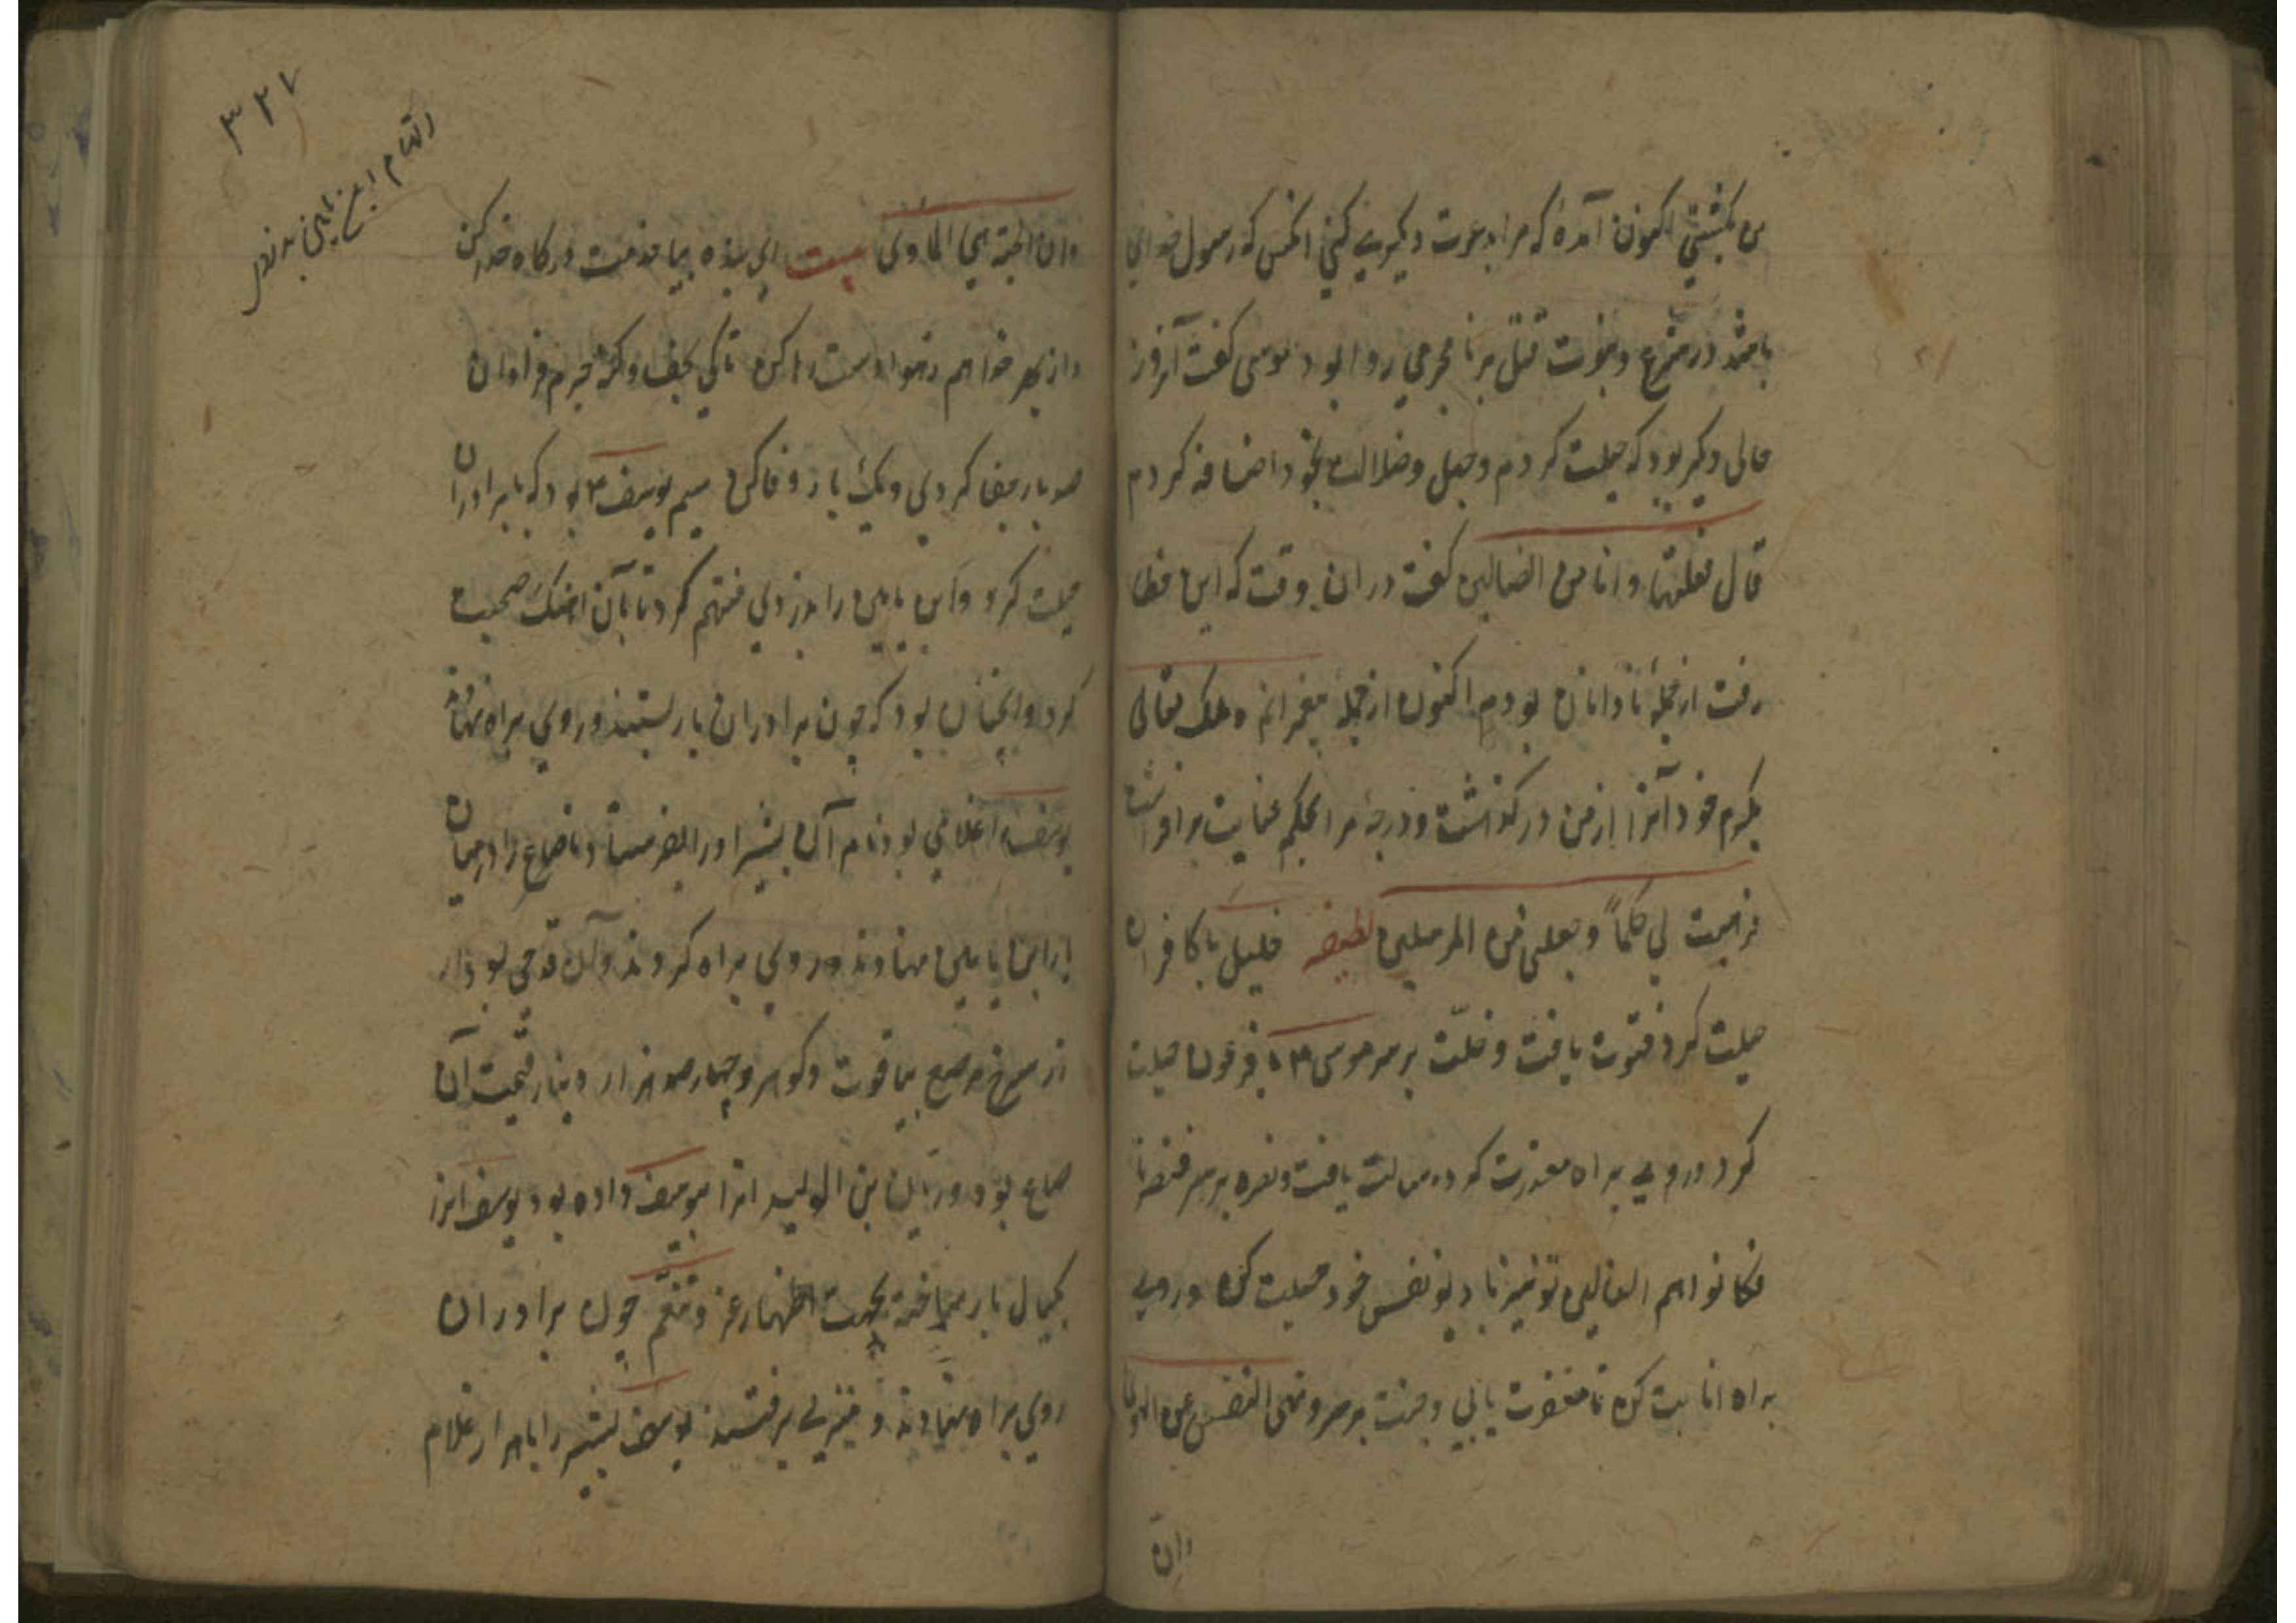 من بکشتی اکنون آمدهٔ که مرا بدعوت دیگری کنی انکس که رسول خدای
باشد در شرع دعوت قتل بر نامجرمی روا بود موسی کفت آنروز
حالی دیگر بود که حیلت کردم وجهل وضلالت بخود اضافه کردم
قال فعلتها وانا من الضالین کفت در ان وقت که این خطا
رفت از جملهٔ نادانان بودم اکنون از جملهٔ پیغمبرانم وملک تعالی
بکرم خود آنرا از من در کذاشت ودرجهٔ مرا بحکم عنایت برافراشت
فوهبت لی حکماً وجعلنی من المرسلین لطیفه خلیل با کافران
حیلت کرد فتوت یافت وخلّت برسر موسی ۴ با فرعون حیلت
کرد وروی براه معذرت کرد رسالت یافت ونصره برسر فنصرنا
فکانوا هم الغالبین تو نیز با دیو نفس خود حیلت کن وروی
براه انابت کن تا مغفرت یابی وجنت برسر ونهی النفس عن الهوی
وان
۳۲۷
فان الجنة هی الماوی بیت ای بنده بیا خدمت درکاه خدا کن
صد بار جفا کردی ویک بار وفا کن سیم یوسف ۴ بود که با برادران
حیلت کرد وابن یامین را بدزدی متهم کرد تا بآن اهنک صحبت
کرد وانچنان بود که چون برادران بار بستند وروی براه نهادند
یوسف را غلامی بود نام آن بشیر اورا بفرستاد تا صاع را درمیان
بار ابن یامین نهادند وروی براه کردند وآن قدحی بود از
زر سرخ مرصع بیاقوت وکوهر وچهار صد هزار دینار قیمت آن
صاع بود وریان بن الولید انرا بیوسف داده بود یوسف انرا
کیال بار ساخته بجهت اظهار عز وتنعّم چون برادران
روی براه نهادند ومنزلی برفتند یوسف بشیر را با هزار غلام